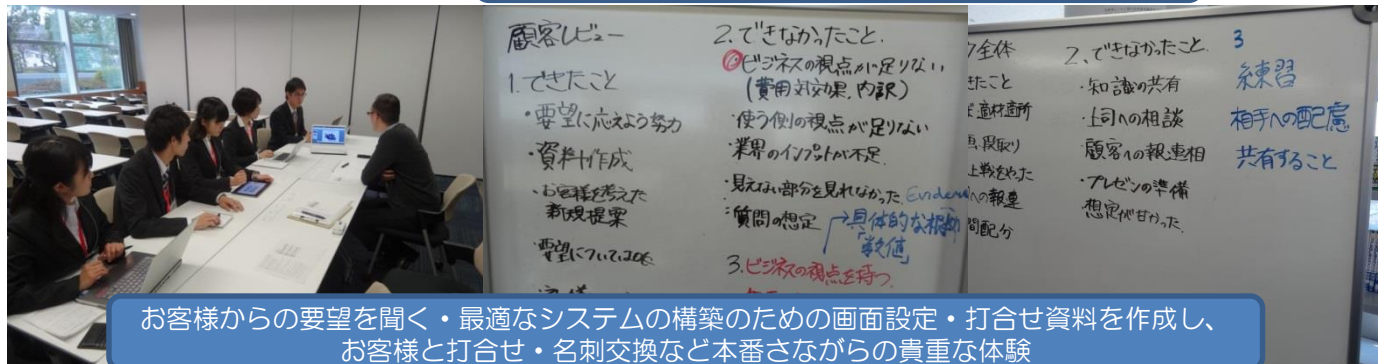 顧客レビュー
1.できたこと
・要望に応えよう努力
・資料作成
・お客様を考えた
新規提案
・要望については
2.できなかったこと.
①ビジネスの視点が足りない
(費用対効果,内訳)
・使う側の視点が足りない
・業界のインプットが不足.
・見えない部分を見れなかった.
・質問の想定
→具体的な
「数値」
3.ビジネスの視点を持つ.
全体
たこと
適材適所
段取り
への報連
配分
2、できなかったこと.
・知識の共有
・上司への相談
・顧客への報連相
・プレゼンの準備
想定が甘かった.
3
練習
相手への配慮
共有すること
お客様からの要望を聞く・最適なシステムの構築のための画面設定・打合せ資料を作成し、
お客様と打合せ・名刺交換など本番さながらの貴重な体験